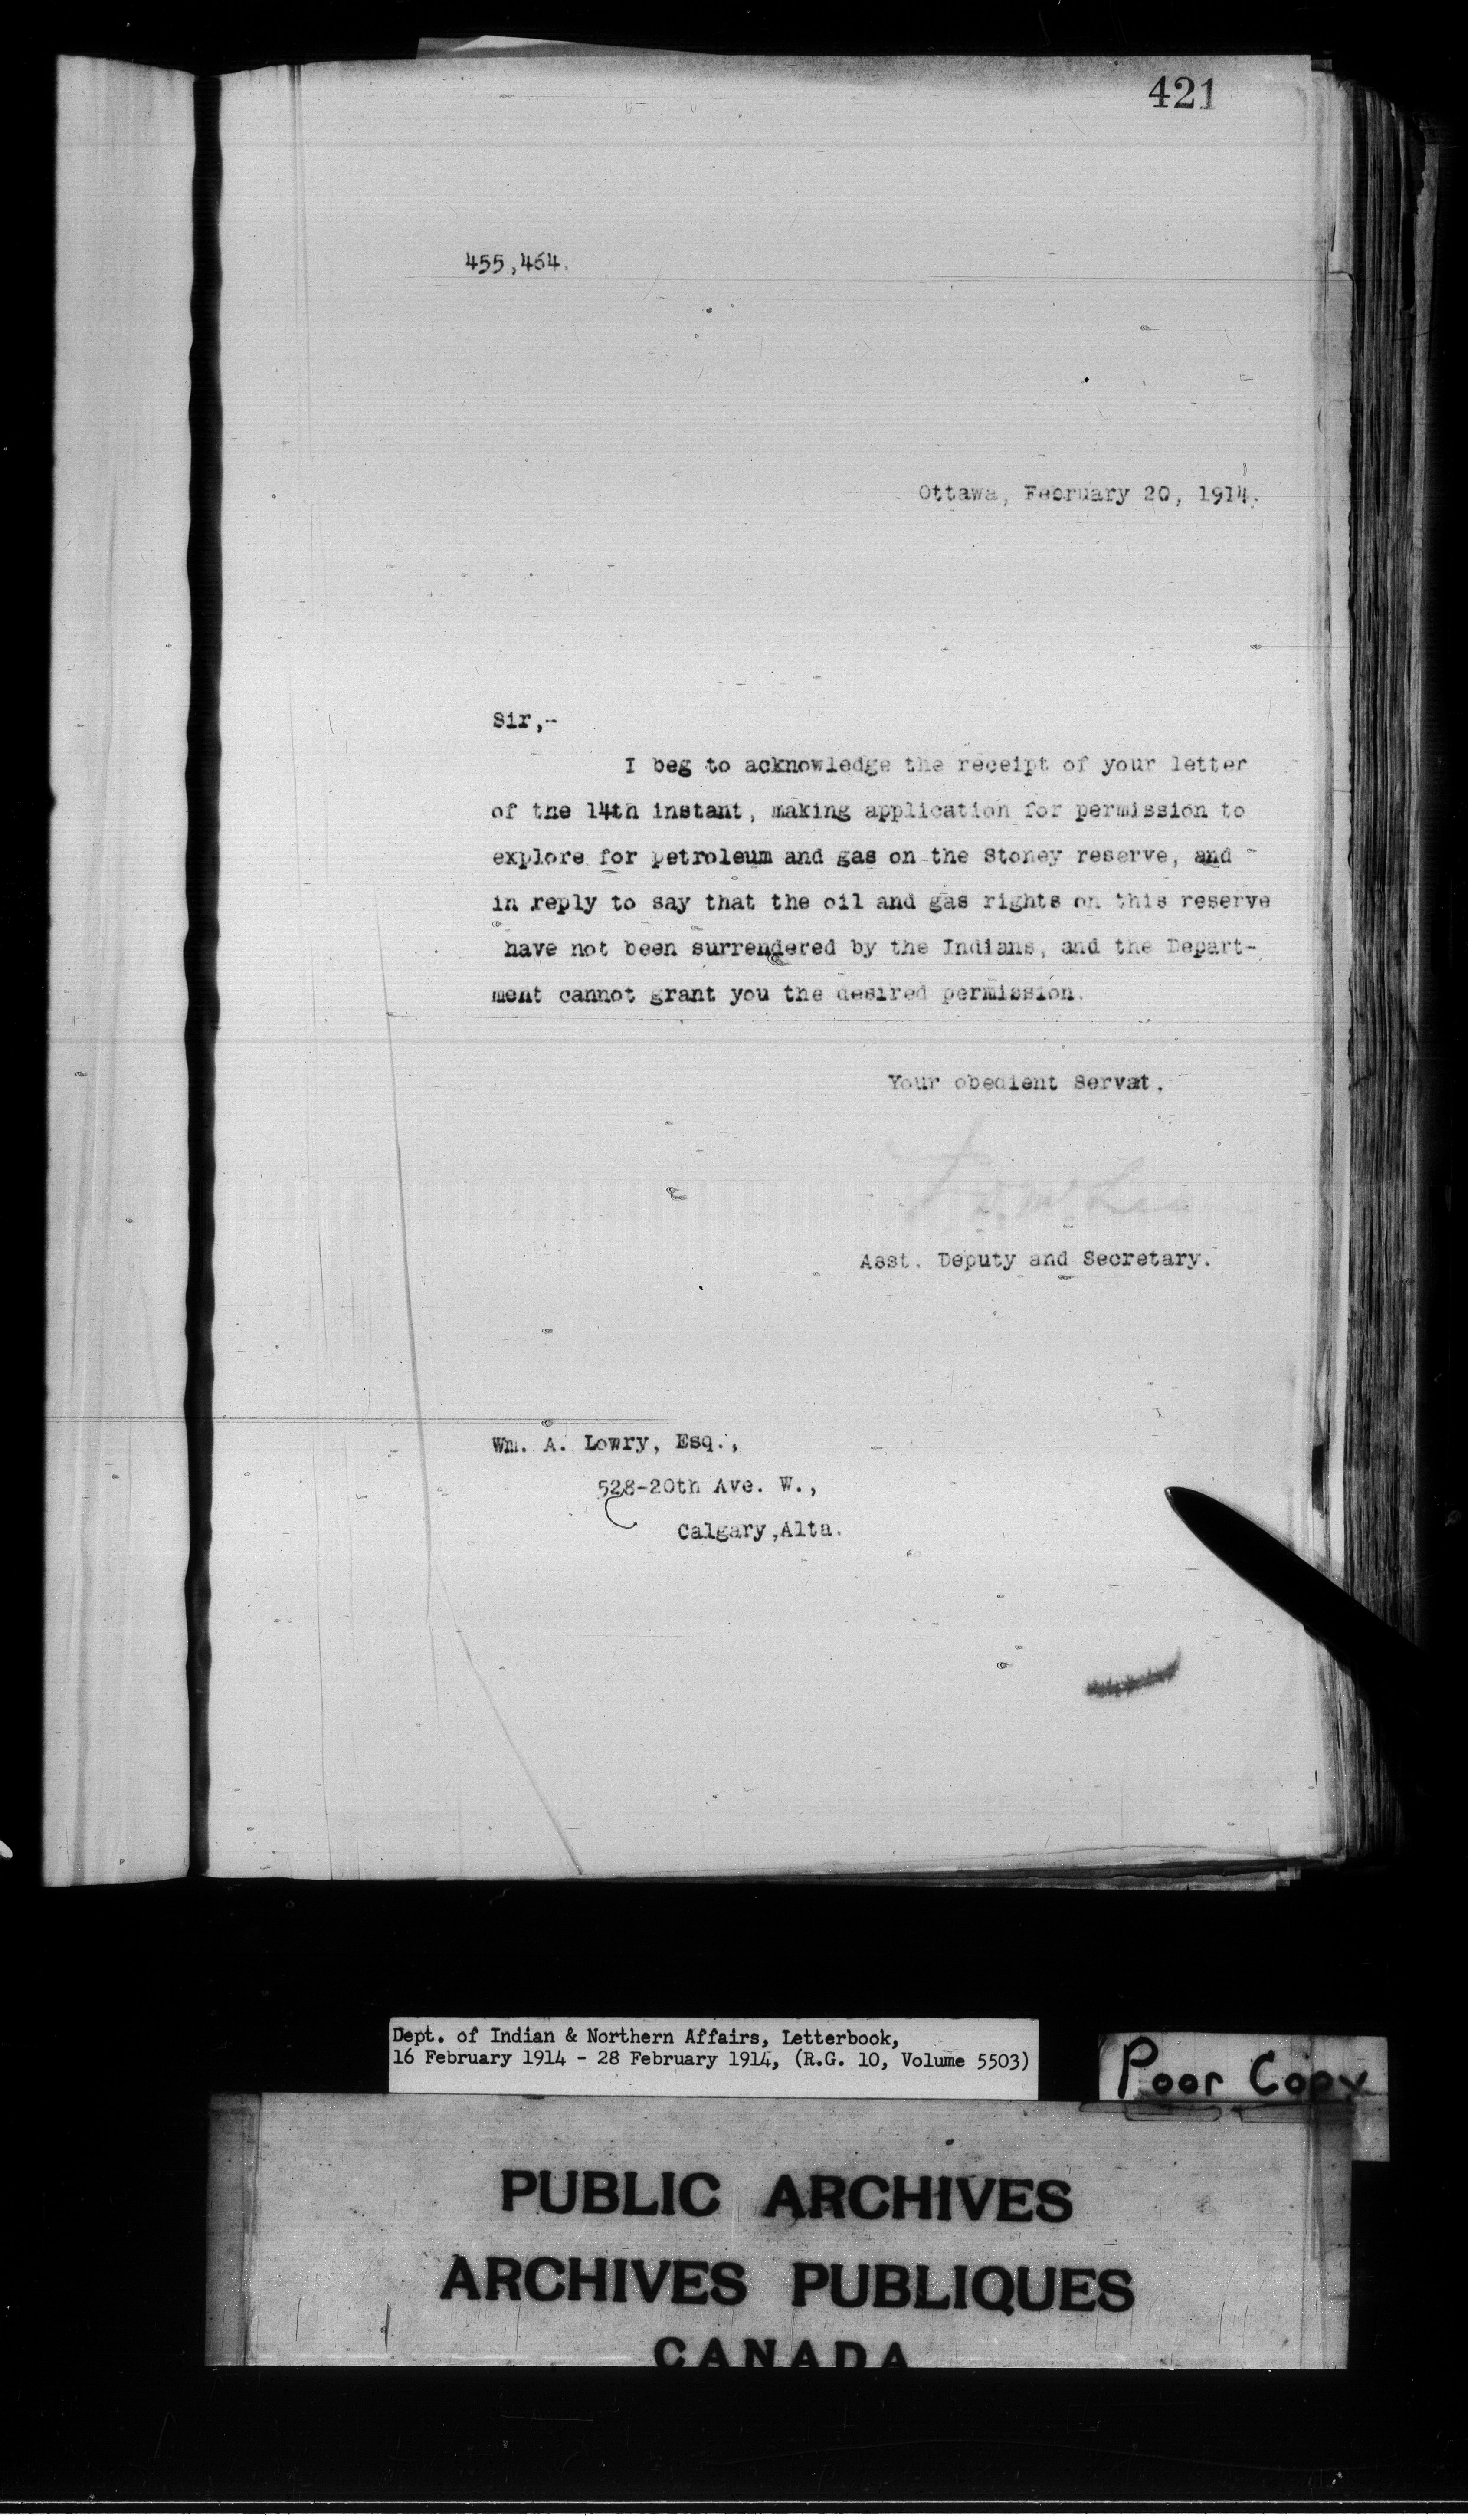 421
455,464.
Ottawa, February 20, 1914.
Sir,-
I beg to acknowledge the receipt of your letter
of the 14th instant, making application for permission to
explore for petroleum and gas on the Stoney reserve, and
in reply to say that the oil and gas rights on this reserve
have not been surrendered by the Indians, and the Depart-
ment cannot grant you the desired permission.
Your obedient Servat,
J. D. McLean
Asst. Deputy and Secretary.
Wm. A. Lowry, Esq.,
528-20th Ave. W.,
Calgary,Alta.
Dept. of Indian & Northern Affairs, Letterbook,
16 February 1914 - 28 February 1914, (R.G. 10, Volume 5503)
Poor Copy
PUBLIC ARCHIVES
ARCHIVES PUBLIQUES
CANADA